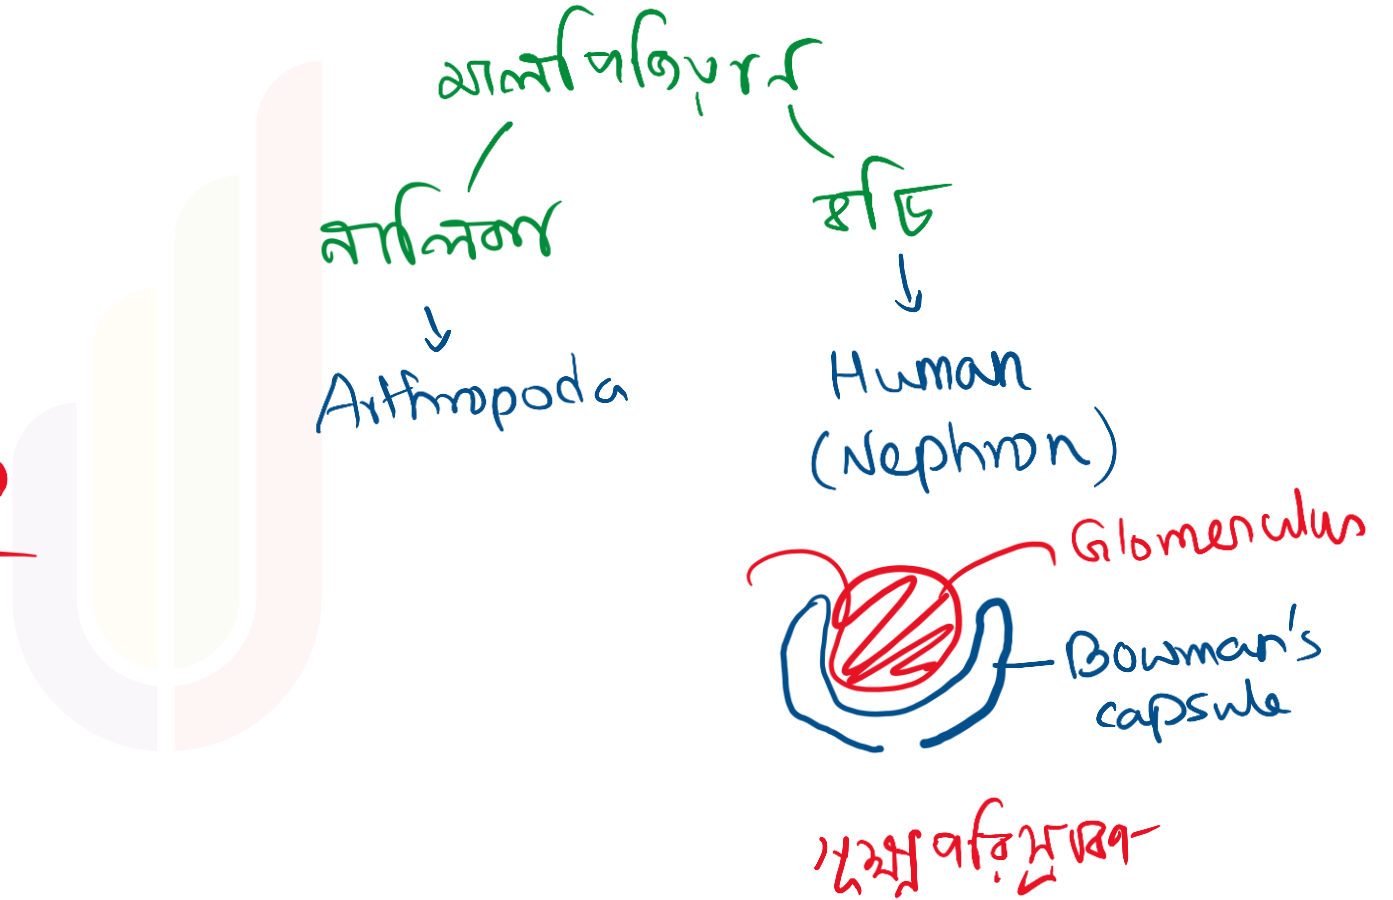 মালপিজিয়ান
নালিকা
বডি
Arthropoda
Human
(Nephron)
Glomerulus
Bowman's
capsule
সূক্ষ্ম পরিস্রাবণ